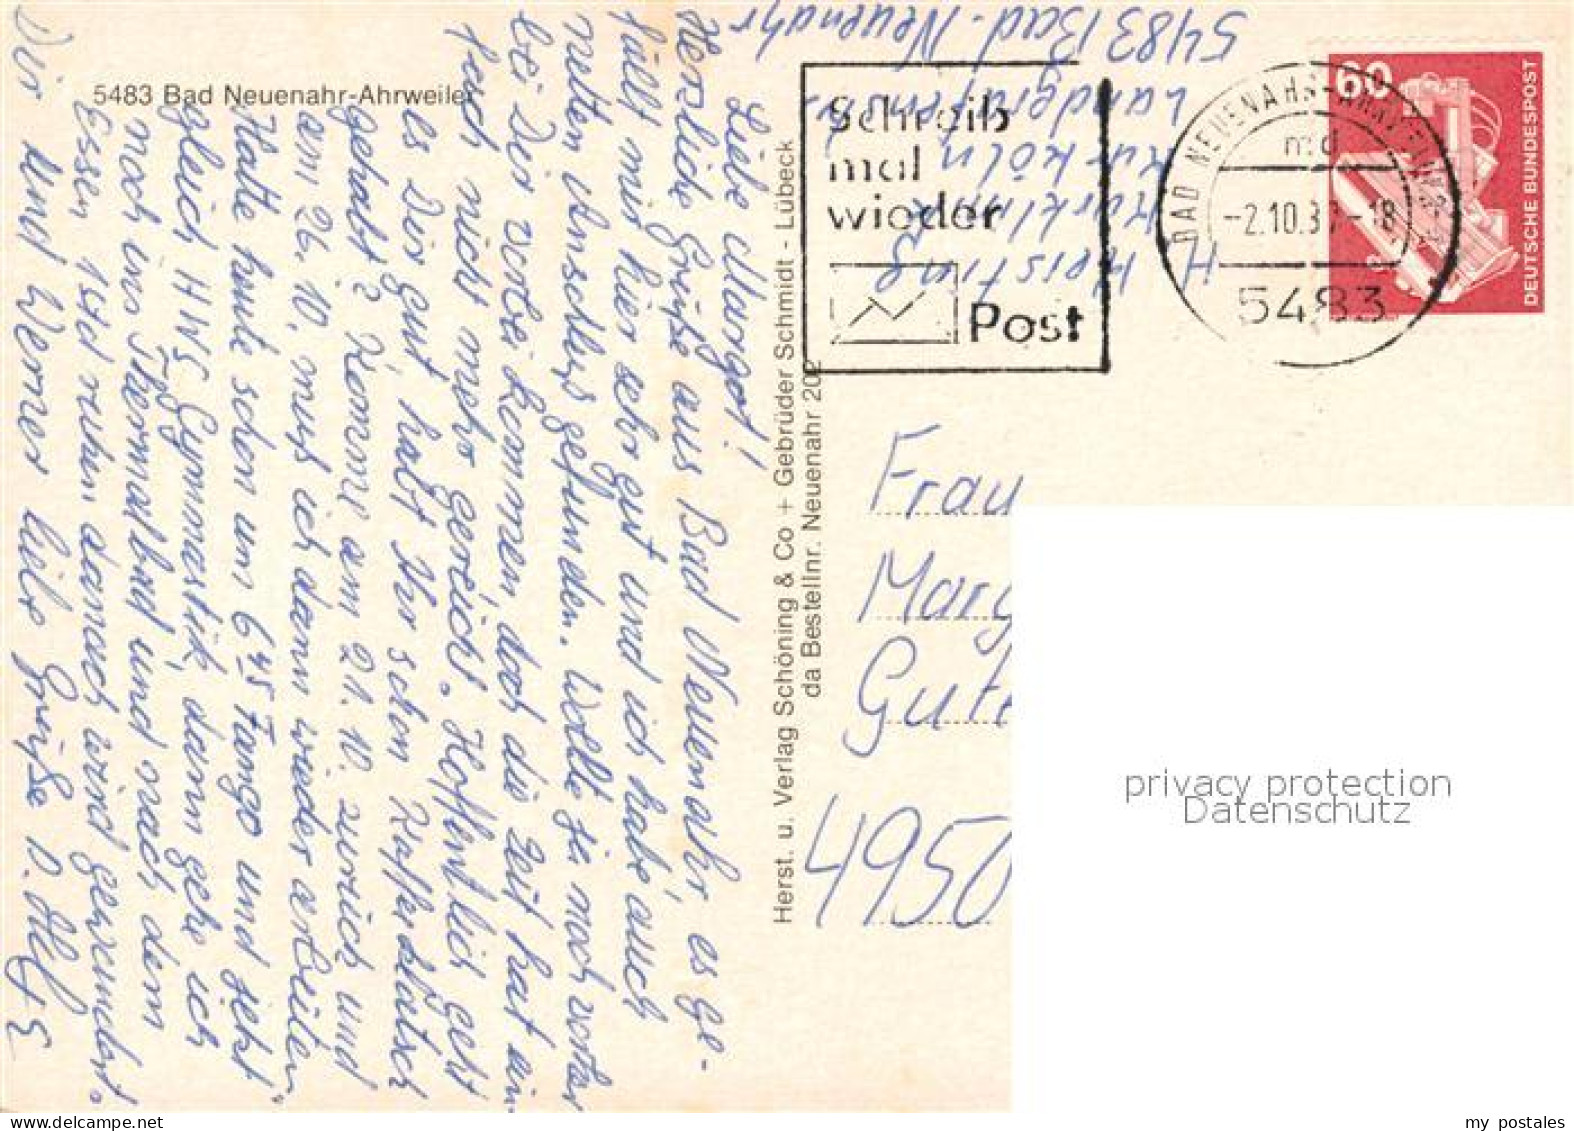 5483 Bad Neuenahr-Ahrweiler
Liebe Margot!
Herzliche Grüße aus Bad Neuenahr, es ge-
fällt mir hier sehr gut und ich habe auch
netten Anschluß gefunden. Wollte ja noch vorher
bei Dir vorbei kommen, doch die Zeit hat ein-
fach nicht mehr gereicht. Hoffentlich geht
es Dir gut, habt Ihr schon Kaffeeklatsch
gehabt? Komme am 21.10. zurück und
am 26.10. muß ich dann wieder arbeiten.
Hatte heute schon um 6 45 Fango und jetzt
gleich HWS Gymnastik, dann gehe ich
noch ins Thermalbad und nach dem
Essen 1 Std ruhen danach wird gewandert.
Dir und Werner liebe Grüße
Herst. u. Verlag Schöning & Co + Gebrüder Schmidt - Lübeck
da Bestellnr. Neuenahr 202
H Heisting
Kurklinik
Kurköln
Landgrafenstr.
5483 Bad-Neuenahr
Schreib
mal
wieder
Post
BAD NEUENAHR-AHRWEILER
md
-2.10.8 -18
5483
60
DEUTSCHE BUNDESPOST
Frau
Marg
Gute
4950
privacy protection
Datenschutz
my postales